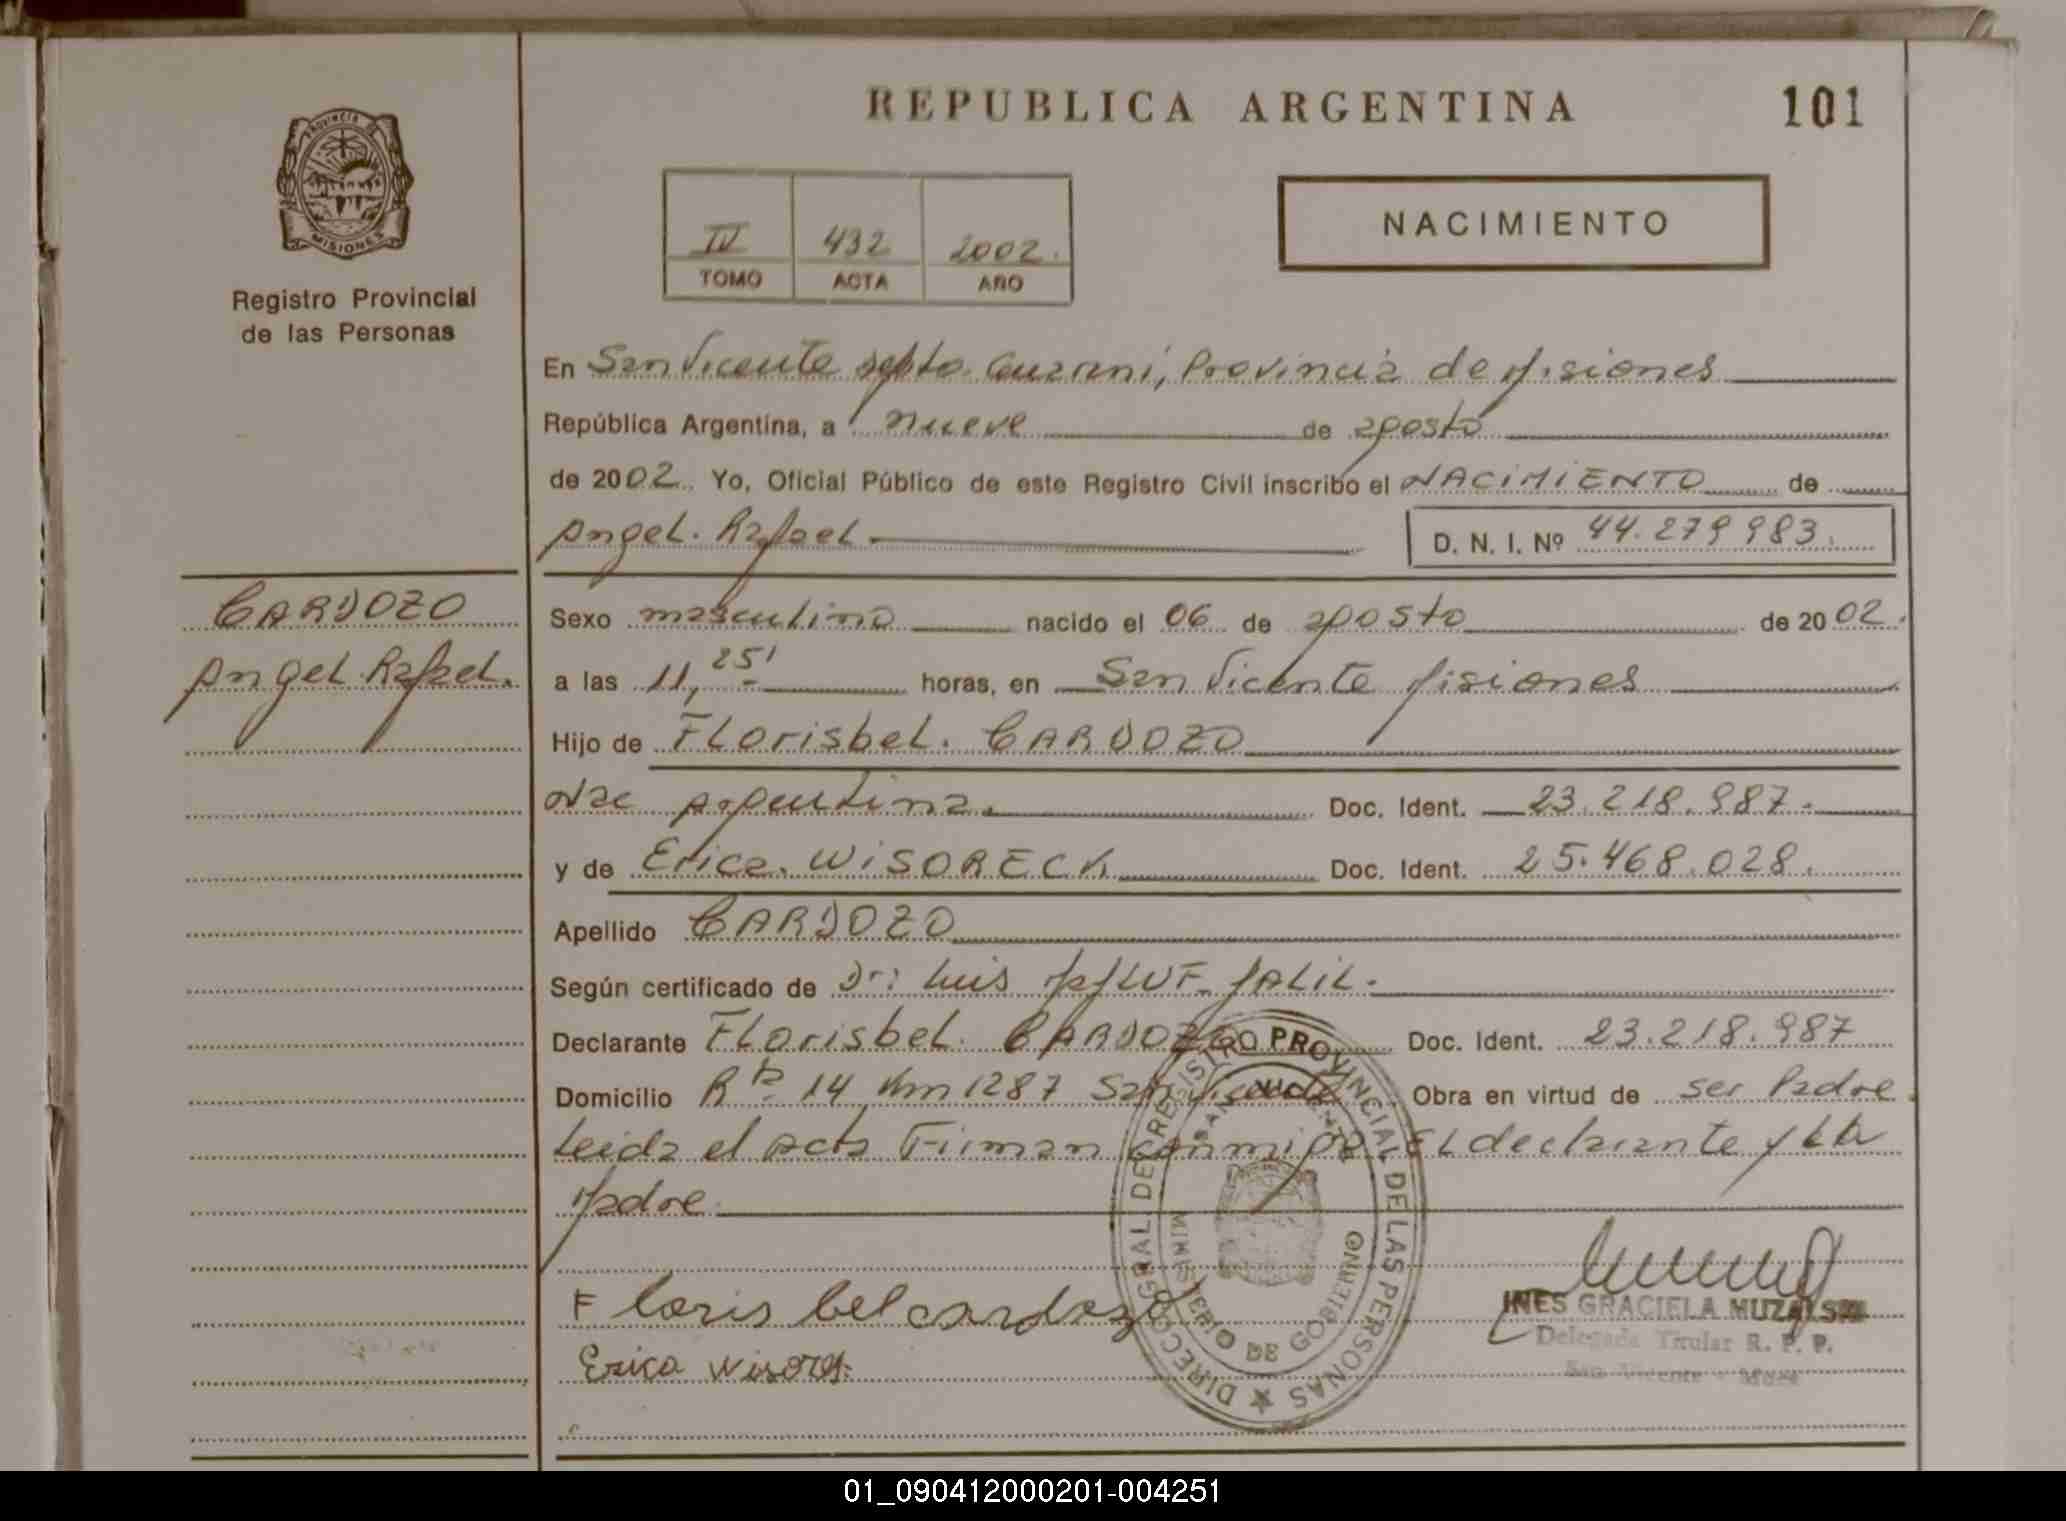 REPUBLICA ARGENTINA
101
PROVINCIA DE
MISIONES
Registro Provincial
de las Personas
IV 432 2002.
TOMO ACTA AÑO
NACIMIENTO
En San Vicente Depto. Guarani, Provincia de Misiones
República Argentina, a nueve de agosto
de 2002. Yo, Oficial Público de este Registro Civil inscribo el NACIMIENTO de
Angel. Rafael.
D. N. I. Nº 44.279983.
CARDOZO
Angel Rafael.
Sexo masculino nacido el 06 de agosto de 2002.
a las 11,25' horas, en San Vicente Misiones
Hijo de Florisbel. CARDOZO
Nac Argentina. Doc. Ident. 23.218.987.
y de Erica. WISORECK Doc. Ident. 25.468.028.
Apellido CARDOZO
Según certificado de Dr: Luis JALIL.
Declarante Florisbel. CARDOZO Doc. Ident. 23.218.987
Domicilio Rta 14 Km 1287 San Vicente Obra en virtud de ser Padre.
Leida el Acta Firman conmigo El declarante y La
Madre.
DIRECC. GRAL. DE REGISTRO PROVINCIAL DE LAS PERSONAS
SAN VICENTE
MINISTERIO DE GOBIERNO
Floris bel cardozo
Erica
INES GRACIELA
Delegada Titular R. P. P.
San Vicente - Mnes
01_090412000201-004251